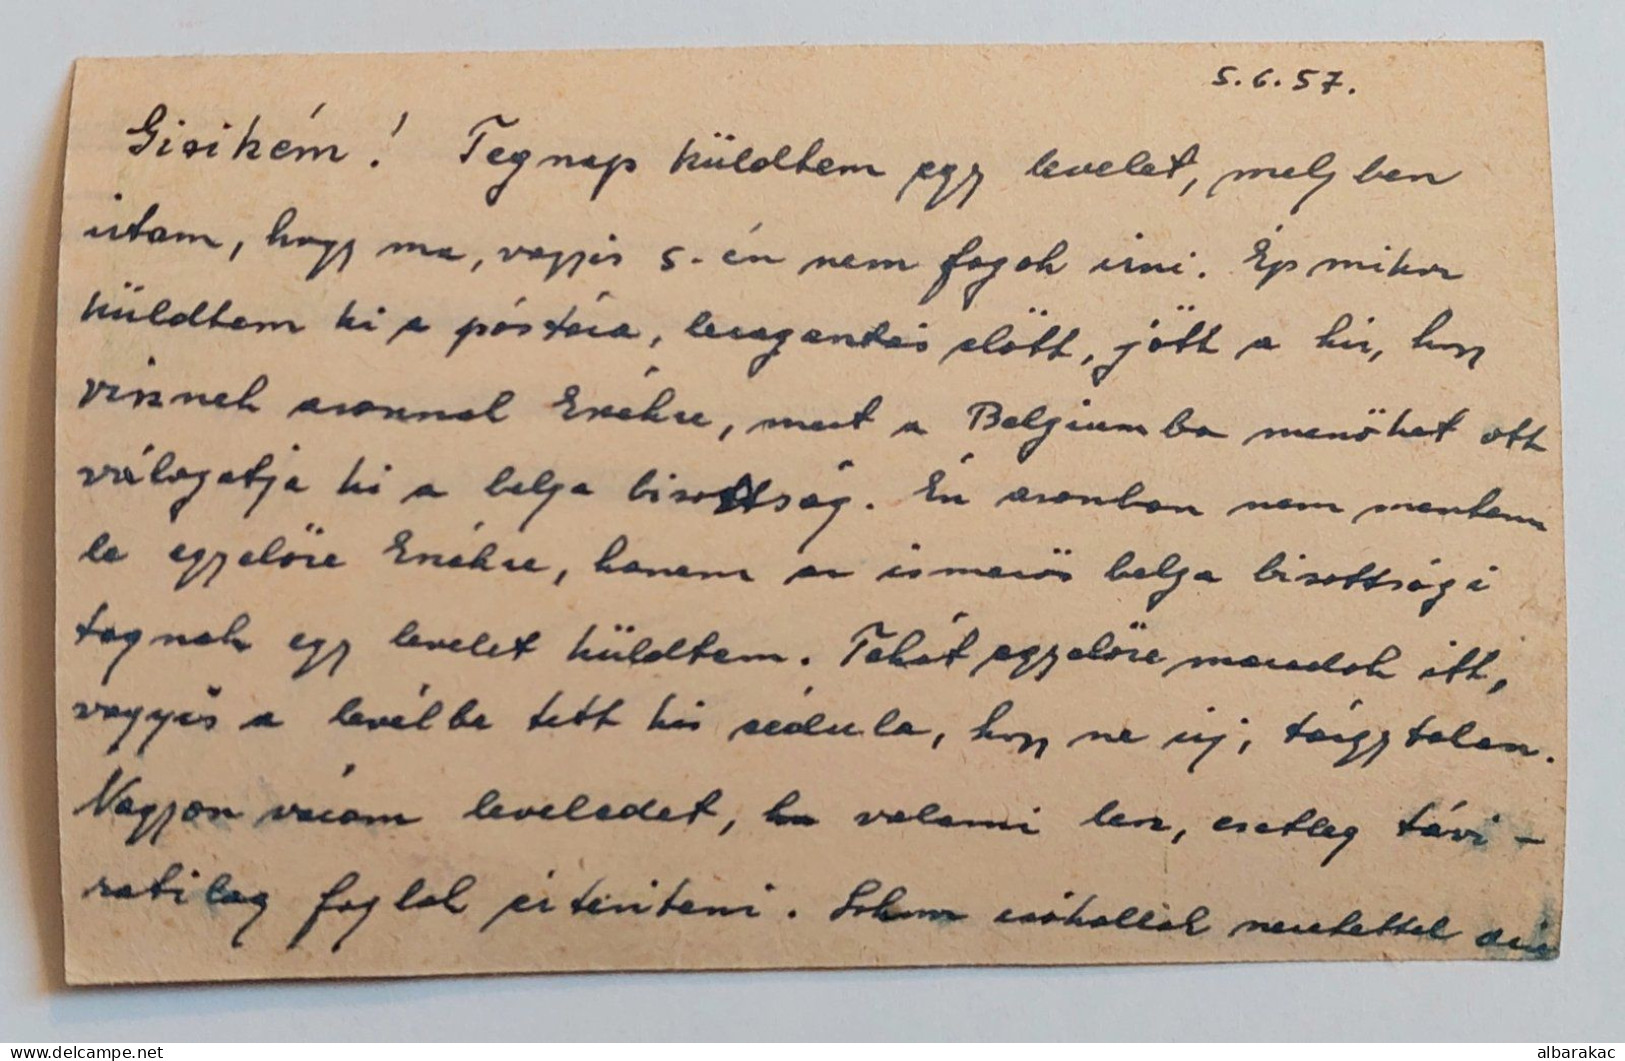 5.6.57.
Gizikém! Tegnap küldtem egy levelet, melyben
irtam, hogy ma, vagyis 5.-én nem fogok irni. Ép mikor
küldtem ki a póstára, leragantás elött, jött a hir, hogy
visznek azonnal, mert a Belgiumba menöket ott
válogatja ki a belga bizottság. Én azonban nem mentem
le egyelöre, hanem az ismerös belga bizottsági
tagnak egy levelet küldtem. Tehát egyelöre maradok itt,
vagyis a levélbe tett kis cédula, hogy ne irj, tárgytalan.
Nagyon várom leveledet, ha valami lesz, esetleg távi-
ratilag foglak értesiteni. Sokszor csókollak szeretettel
albarakac